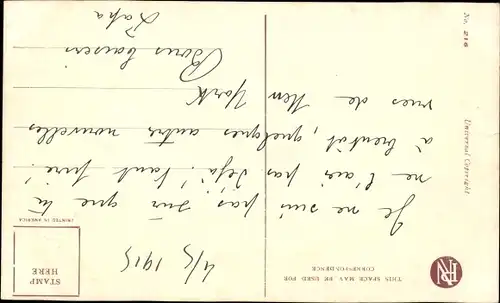 4/5 1915
Je ne suis pas sûr que tu
ne l'aies pas déjà! tant pire!
à bientôt, quelques autres nouvelles
vues de New York
Bons baisers
Papa
THIS SPACE MAY BE USED FOR
CORRESPONDENCE
STAMP
HERE
PRINTED IN AMERICA
Universal Copyright
No. 216